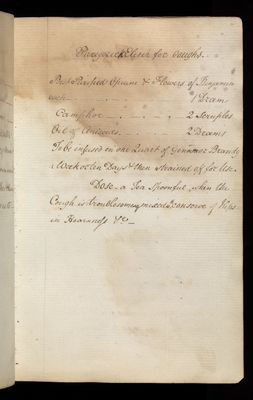 Paregorick Elixir for Coughs.
Best Purified Opium & Flowers of Benjamin
each - - - - - 1 Dram
Camphor - - - - 2 Scruples
Oil of Aniseeds - - - 2 Drams
To be infused in one Quart of Genuine Brandy
a Week or ten Days & then strained off for Use.
Dose a Tea Spoonful, when the
Cough is troublesome, mixed conserve of Hips
in Hoarseness &c